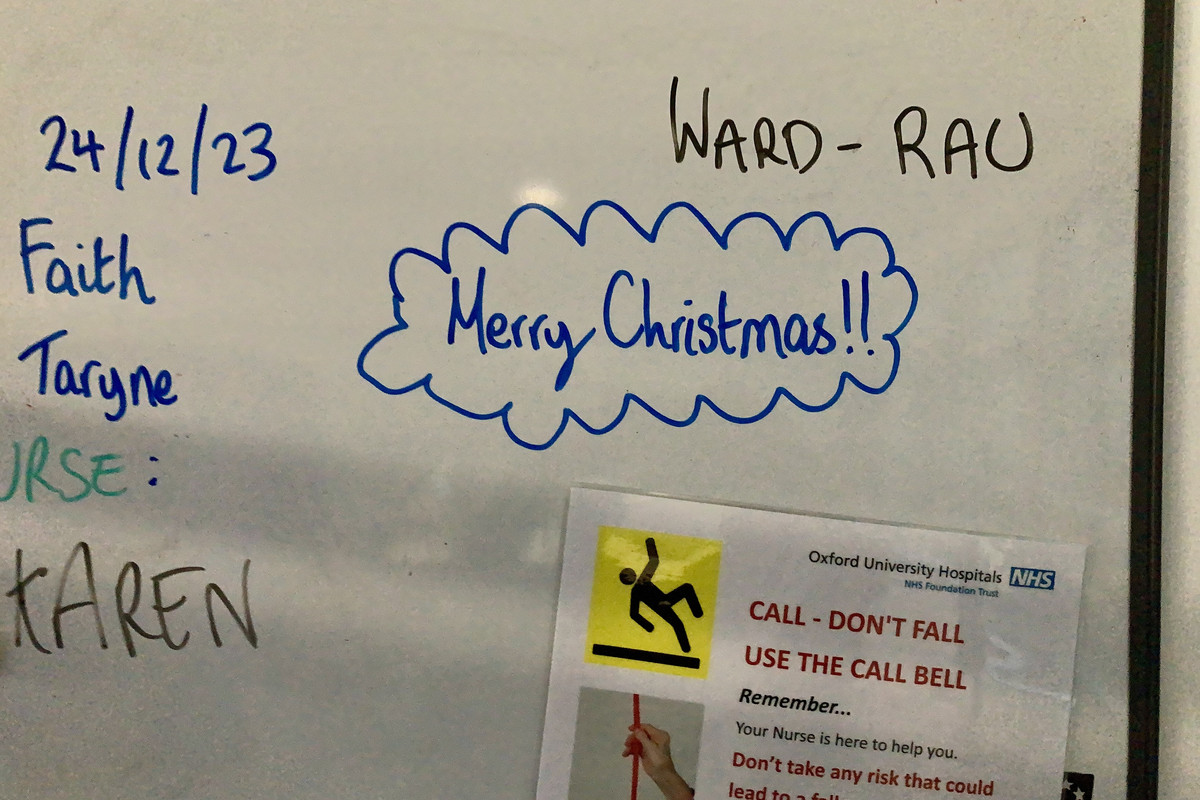 24/12/23
WARD - RAU
Faith
Merry Christmas!!
Taryne
URSE:
KAREN
Oxford University Hospitals NHS
NHS Foundation Trust
CALL - DON'T FALL
USE THE CALL BELL
Remember...
Your Nurse is here to help you.
Don't take any risk that could
lead to a fall